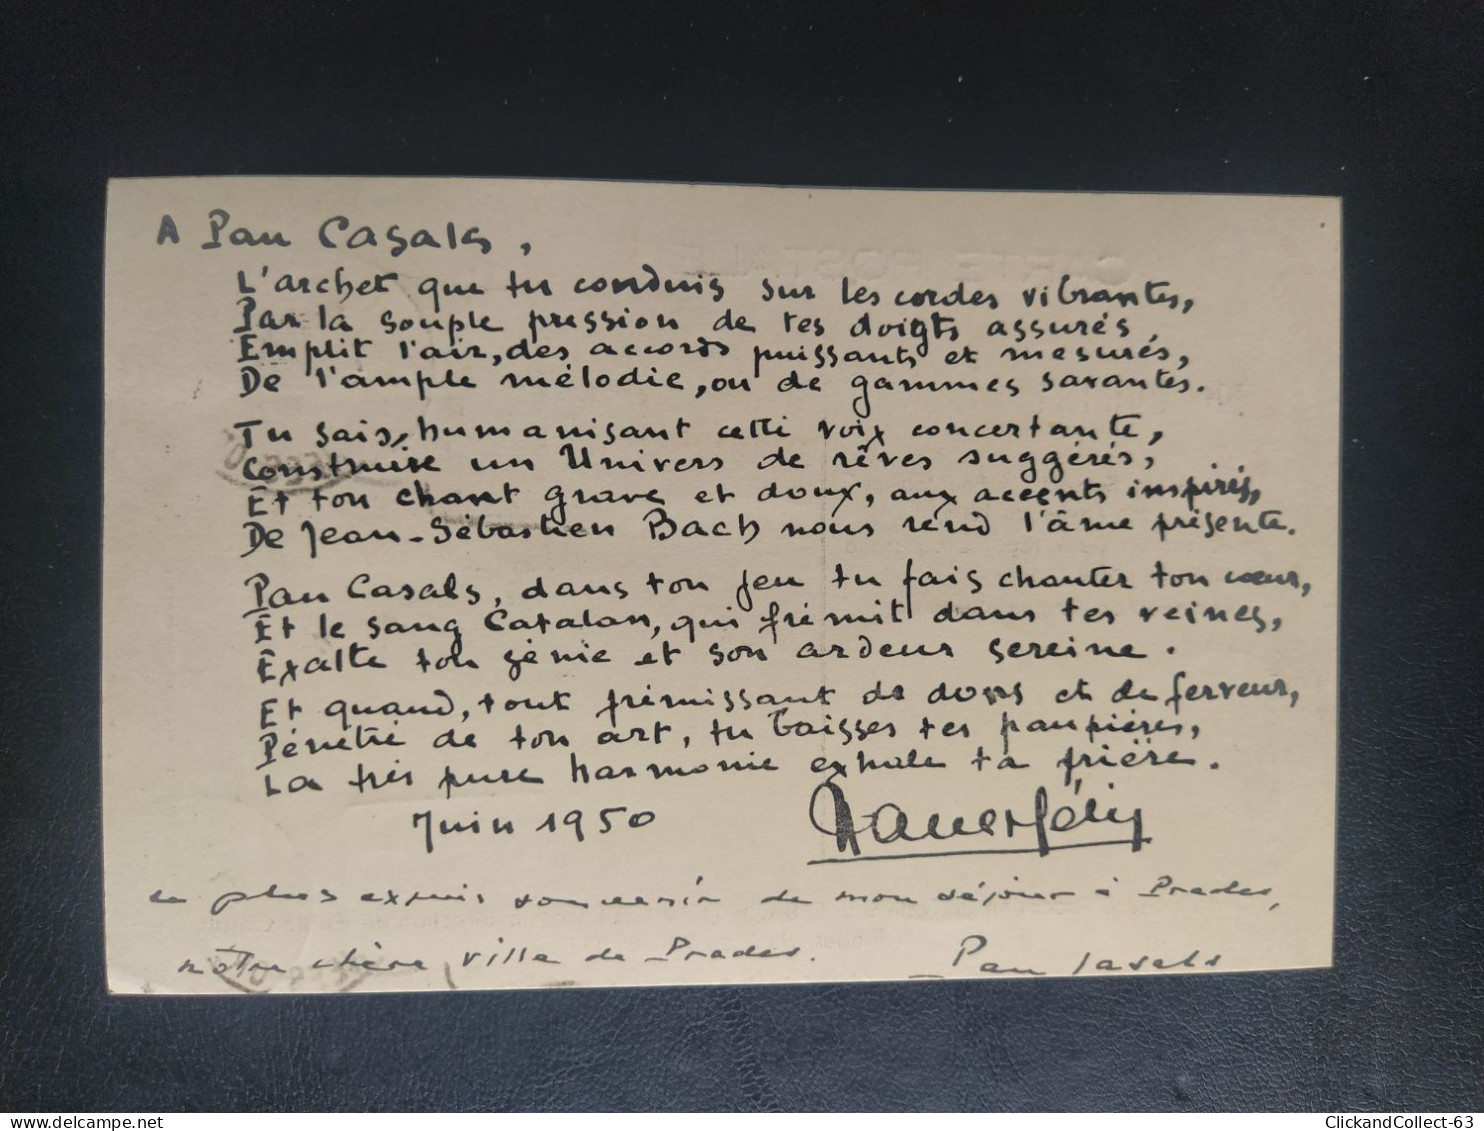 A Pau Casals,
L'archet que tu conduis sur les cordes vibrantes,
Par la souple pression de tes doigts assurés,
Emplit l'air, des accords puissants et mesurés,
De l'ample mélodie, ou de gammes savantes.
Tu sais, humanisant cette voix concertante,
Construire un Univers de rêves suggérés,
Et ton chant grave et doux, aux accents inspirés,
De Jean-Sébastien Bach nous rend l'âme présente.
Pau Casals, dans ton jeu tu fais chanter ton cœur,
Et le sang Catalan, qui frémit dans tes veines,
Exalte ton génie et son ardeur sereine.
Et quand, tout frémissant de dons et de ferveur,
Pénétré de ton art, tu baisses tes paupières,
La très pure harmonie exhale ta prière.
Juin 1950
plus exquis souvenir de mon séjour à Prades,
notre chère ville de Prades. Pau Casals
ClickandCollect-63